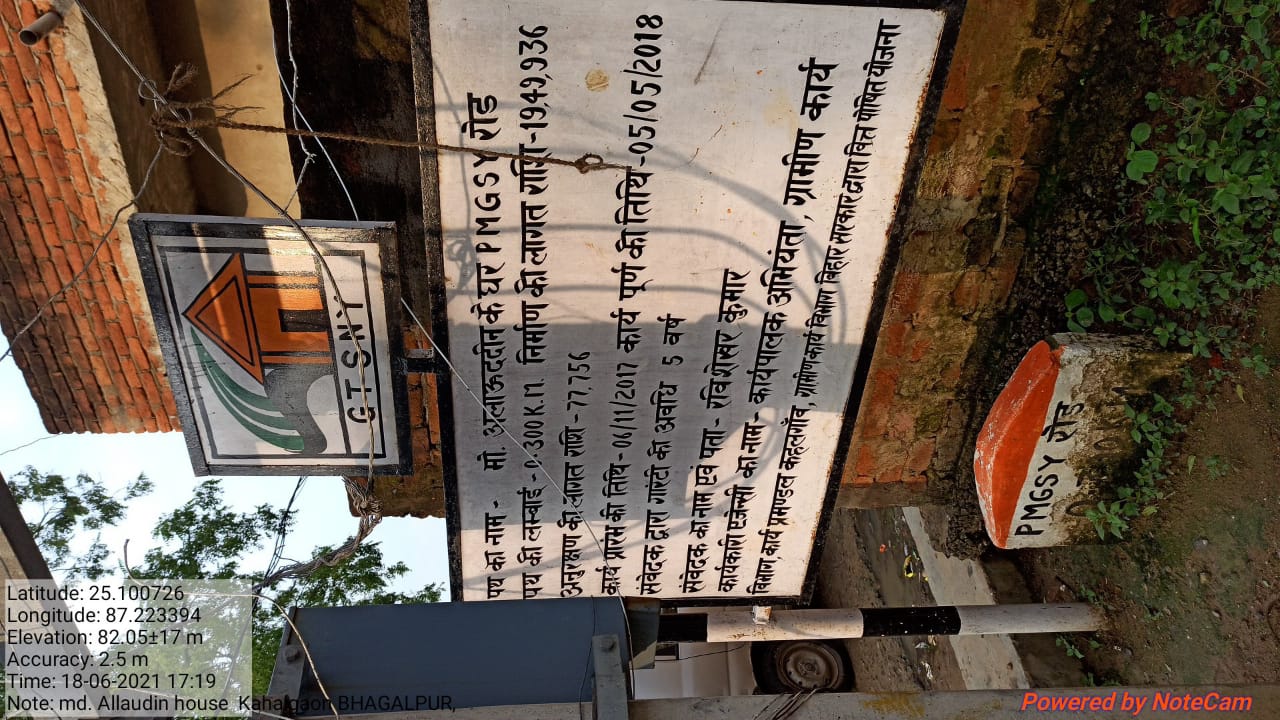 GTSNY
पथ का नाम - मो. अलाऊद्दीन के घर PMGSY रोड
पथ की लम्बाई - 0.300 K.M. निर्माण की लागत राशि - 19,49,936
अनुरक्षण की लागत राशि - 77,756
कार्य प्रारंभ की तिथि - 06/11/2017 कार्य पूर्ण की तिथि - 05/05/2018
संवेदक द्वारा गारंटी की अवधि 5 वर्ष
संवेदक का नाम एवं पता - रविशेखर कुमार
कार्यकारी एजेन्सी का नाम - कार्यपालक अभियंता, ग्रामीण कार्य
विभाग, कार्य प्रमण्डल कहलगाँव, ग्रामीण कार्य विभाग बिहार सरकार द्वारा वित्त पोषित योजना
PMGSY रोड
Latitude: 25.100726
Longitude: 87.223394
Elevation: 82.05±17 m
Accuracy: 2.5 m
Time: 18-06-2021 17:19
Note: md. Allaudin house Kahalgaon BHAGALPUR,
Powered by NoteCam